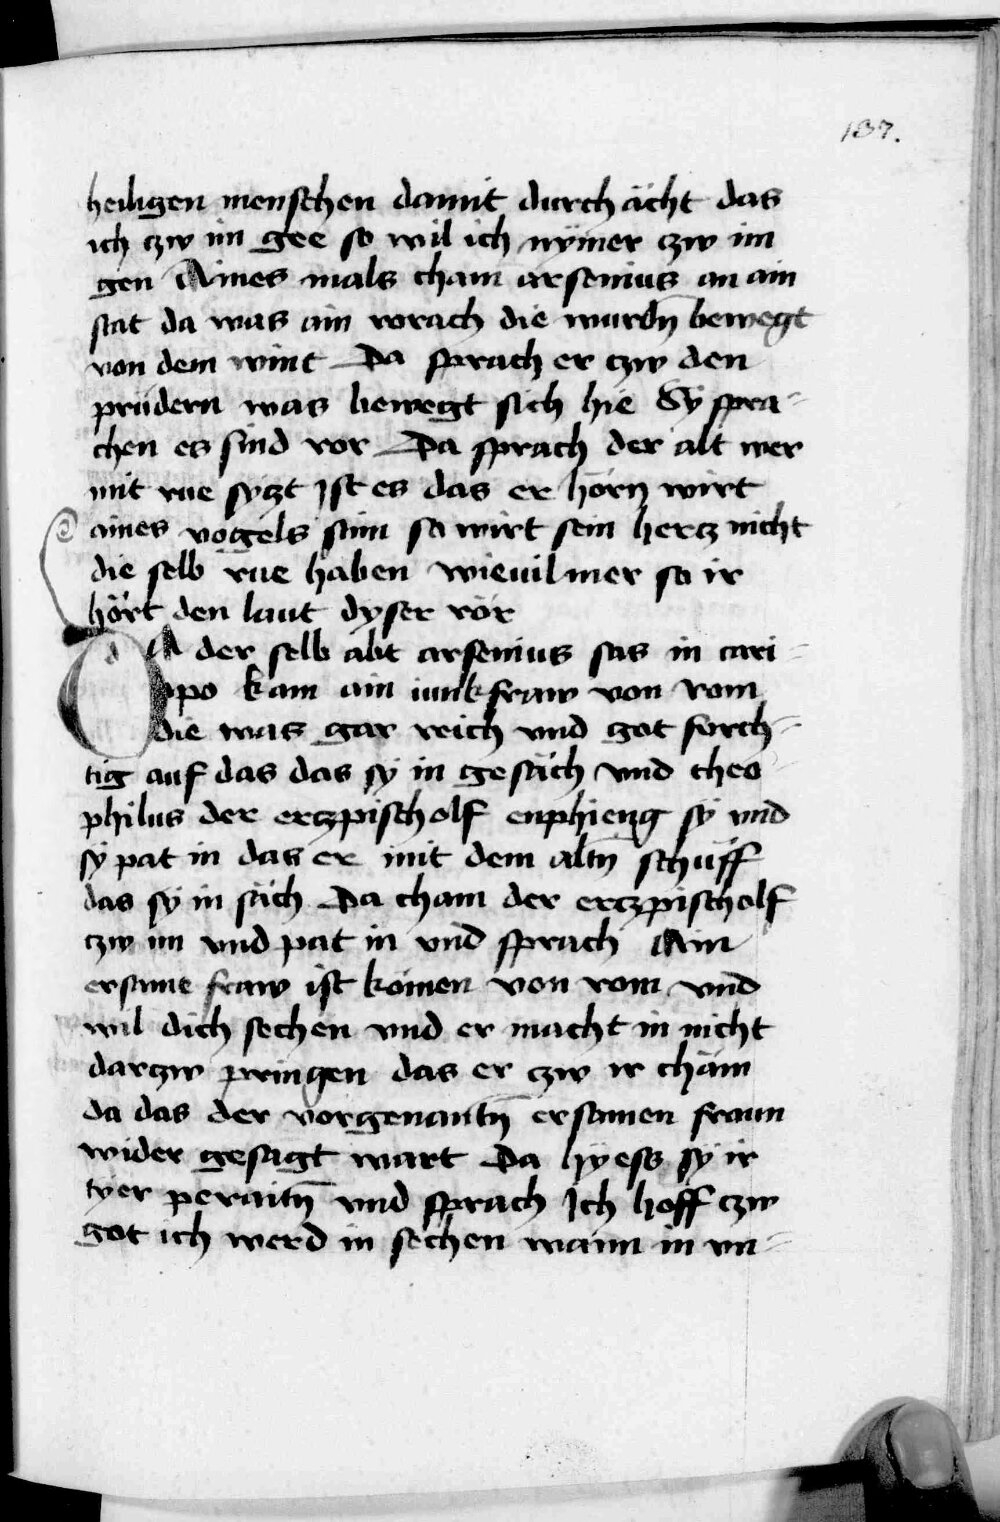 137.
heiligen menschen damit durchächt das
ich czw im gee so wil ich nymer czw im
gen Aines mals cham arsenius an ain
stat da was ain rorach die wurdn̄ bewegt
von dem wint Da sprach er czw den
prüdern was bewegt sich hie Sÿ spra-
chen es sind ror Da sprach der alt wer
mit rue syczt Ist es das er hörn wirt
aines vogels stim so wirt sein hercz nicht
die selb rue haben wieuil mer so ir
hört den laut dyser rör
DA der selb abt arsenius sas in cari-
opo kam ain iunkfraw von Rom
die was gar reich vnd got forch-
tig auf das das sÿ in gesäch vnd theo
philus der erczpischolf enphieng sÿ vnd
sÿ pat in das er mit dem altn̄ schüff
das sÿ in säch Da cham der erczpischolf
czw im vnd pat in vnd sprach Ain
ersame fraw ist kömen von rom vnd
wil dich sechen vnd er macht in nicht
darczw pringen das er czw ir chäm
da das der vorgenantn̄ ersamen fraun
wider gesagt wart Da hÿess sÿ ir
tyer peraitn̄ vnd sprach Ich hoff czw
got ich werd in sechen wann in vn-